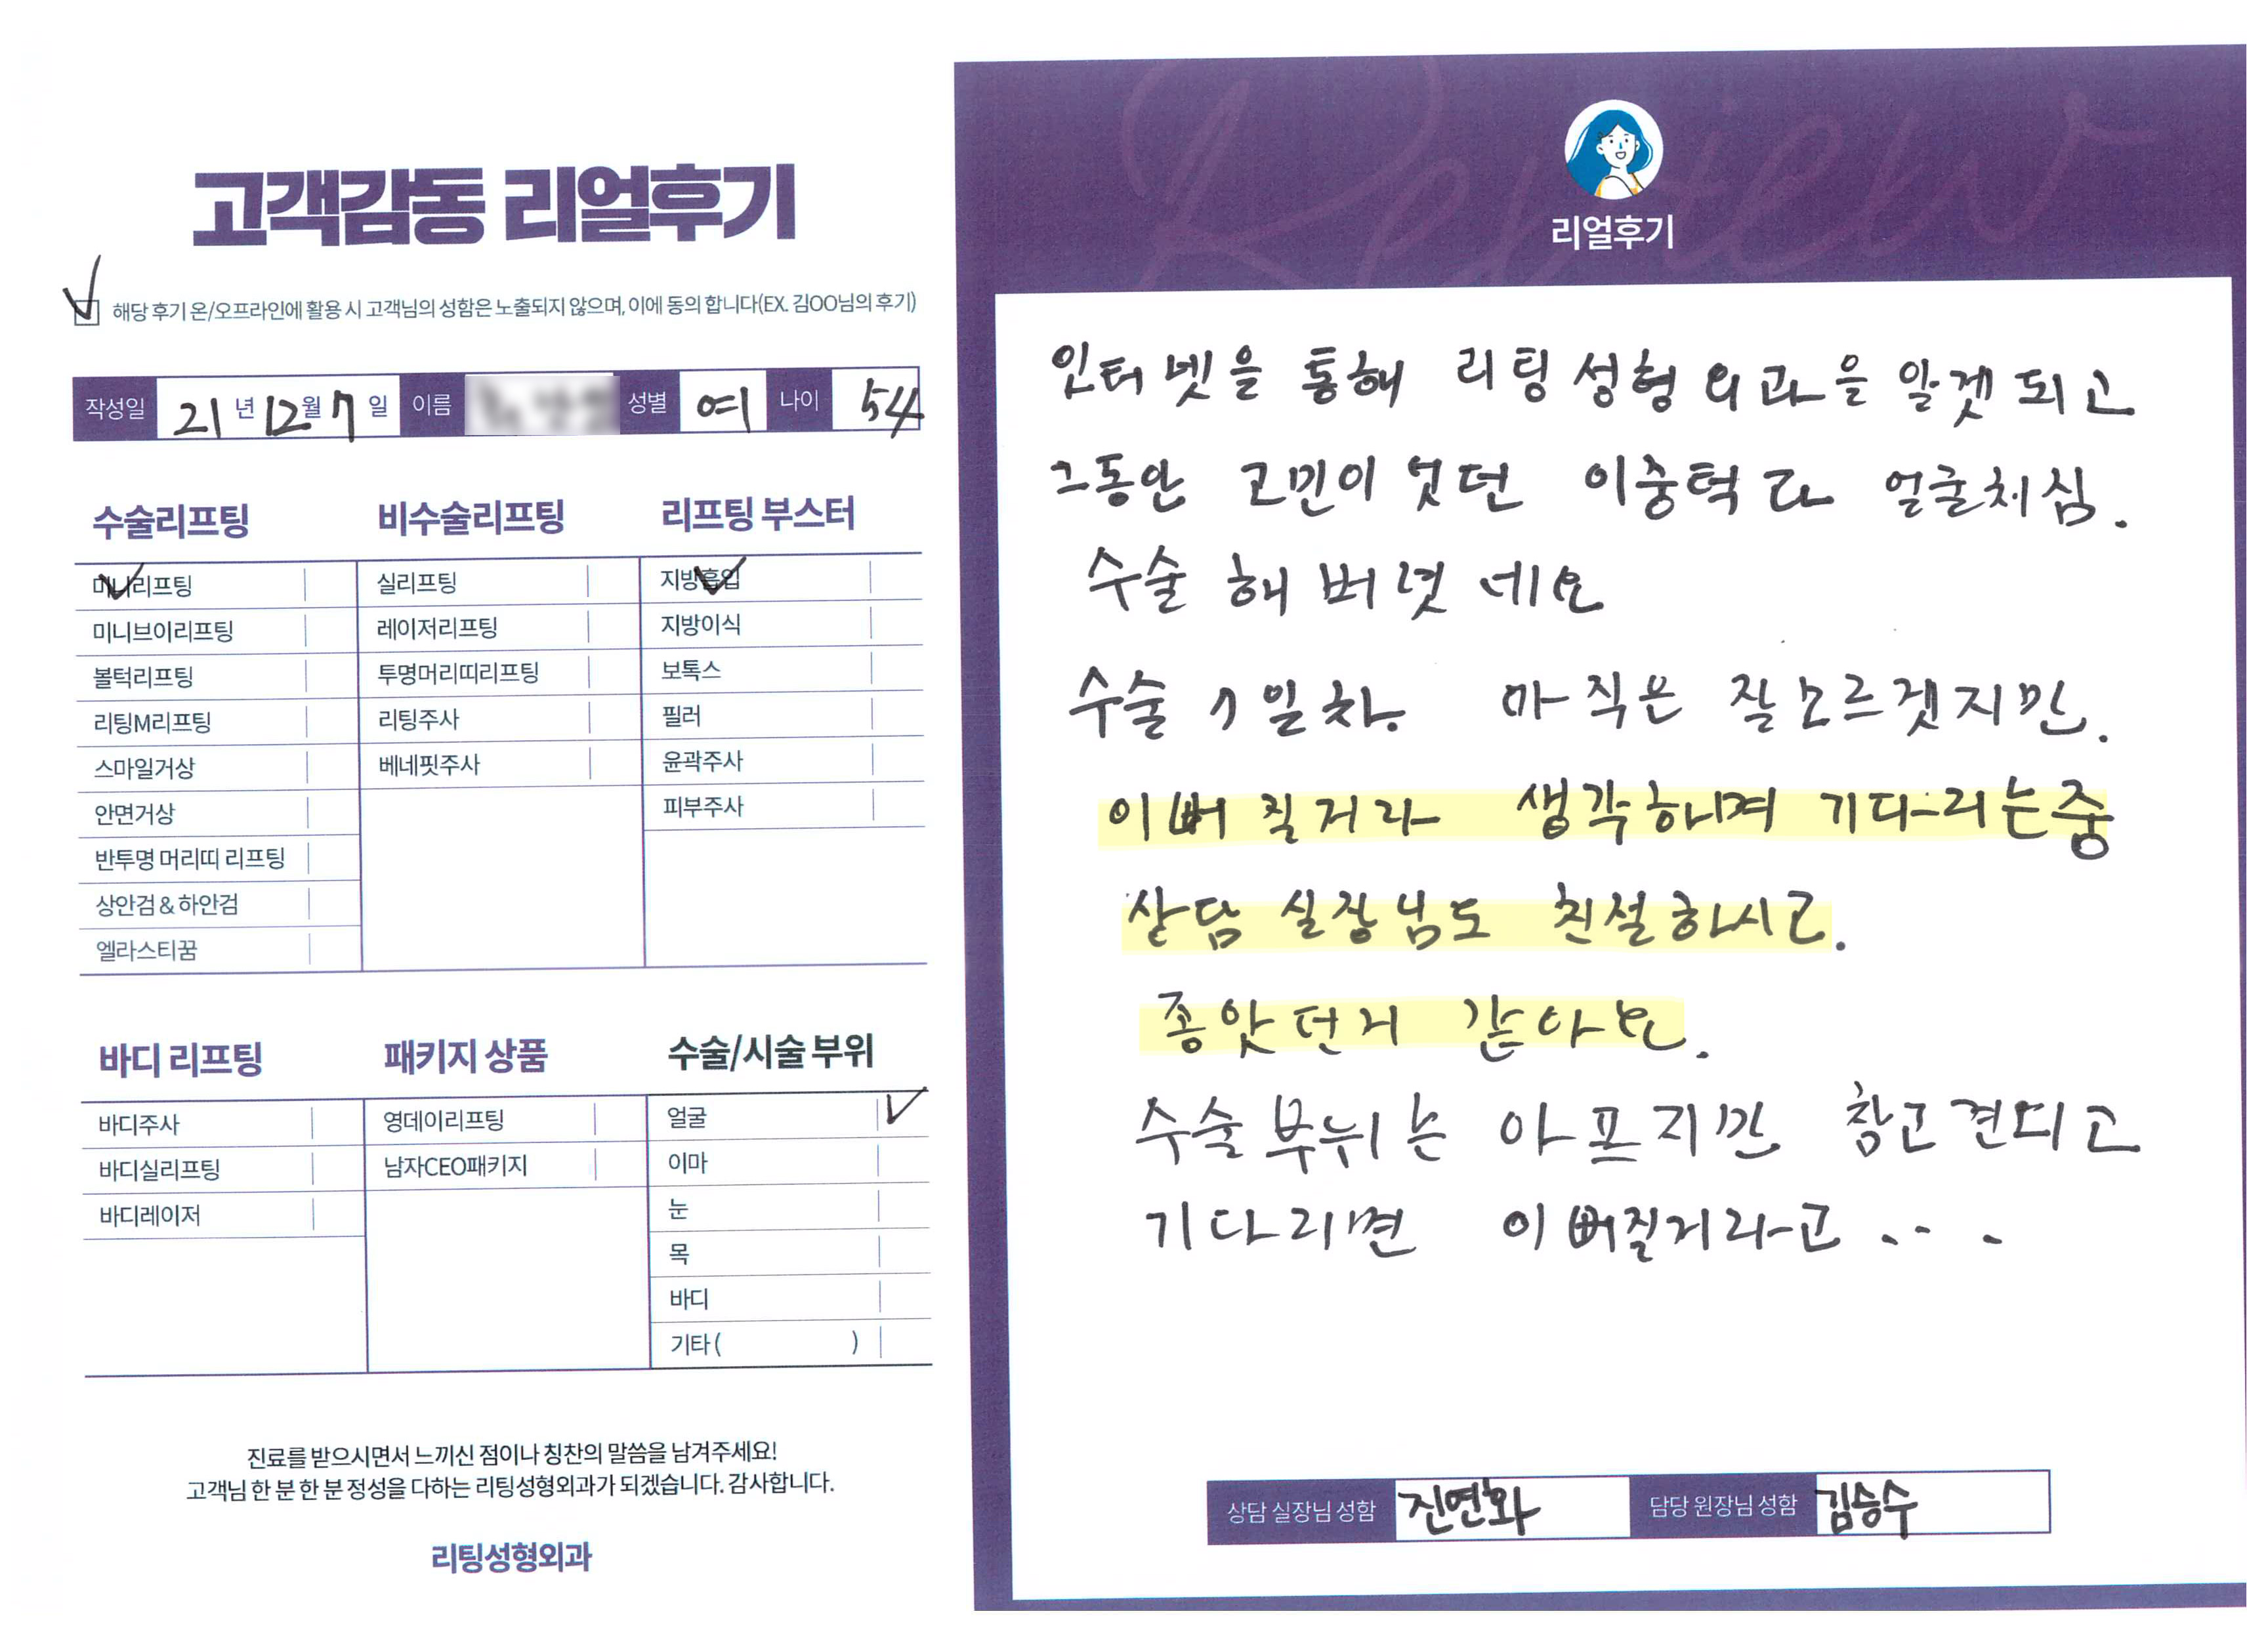 고객감동 리얼후기
해당 후기 온/오프라인에 활용 시 고객님의 성함은 노출되지 않으며, 이에 동의 합니다(EX. 김OO님의 후기)
작성일 21년 12월 7일 이름 성별 여 나이 54
수술리프팅
미니리프팅
미니브이리프팅
볼턱리프팅
리팅M리프팅
스마일거상
안면거상
반투명 머리띠 리프팅
상안검 & 하안검
엘라스티꿈
비수술리프팅
실리프팅
레이저리프팅
투명머리띠리프팅
리팅주사
베네핏주사
리프팅 부스터
지방흡입
지방이식
보톡스
필러
윤곽주사
피부주사
바디 리프팅
바디주사
바디실리프팅
바디레이저
패키지 상품
영데이리프팅
남자CEO패키지
수술/시술 부위
얼굴
이마
눈
목
바디
기타 ( )
진료를 받으시면서 느끼신 점이나 칭찬의 말씀을 남겨주세요!
고객님 한 분 한 분 정성을 다하는 리팅성형외과가 되겠습니다. 감사합니다.
리팅성형외과
Review
리얼후기
인터넷을 통해 리팅성형외과을 알겠되고
그동안 고민이엇던 이중턱다 얼굴처짐.
수술 해버렷네요
수술 1일차. 아직은 잘모르겠지만.
이뻐질거라 생각하며 기다리는중
상담 실장님도 친절하시고.
좋앗던거 같아요.
수술부뉘는 아프지만 참고견디고
기다리면 이뻐질거라고...
상담 실장님 성함 진연화 담당 원장님 성함 김승수